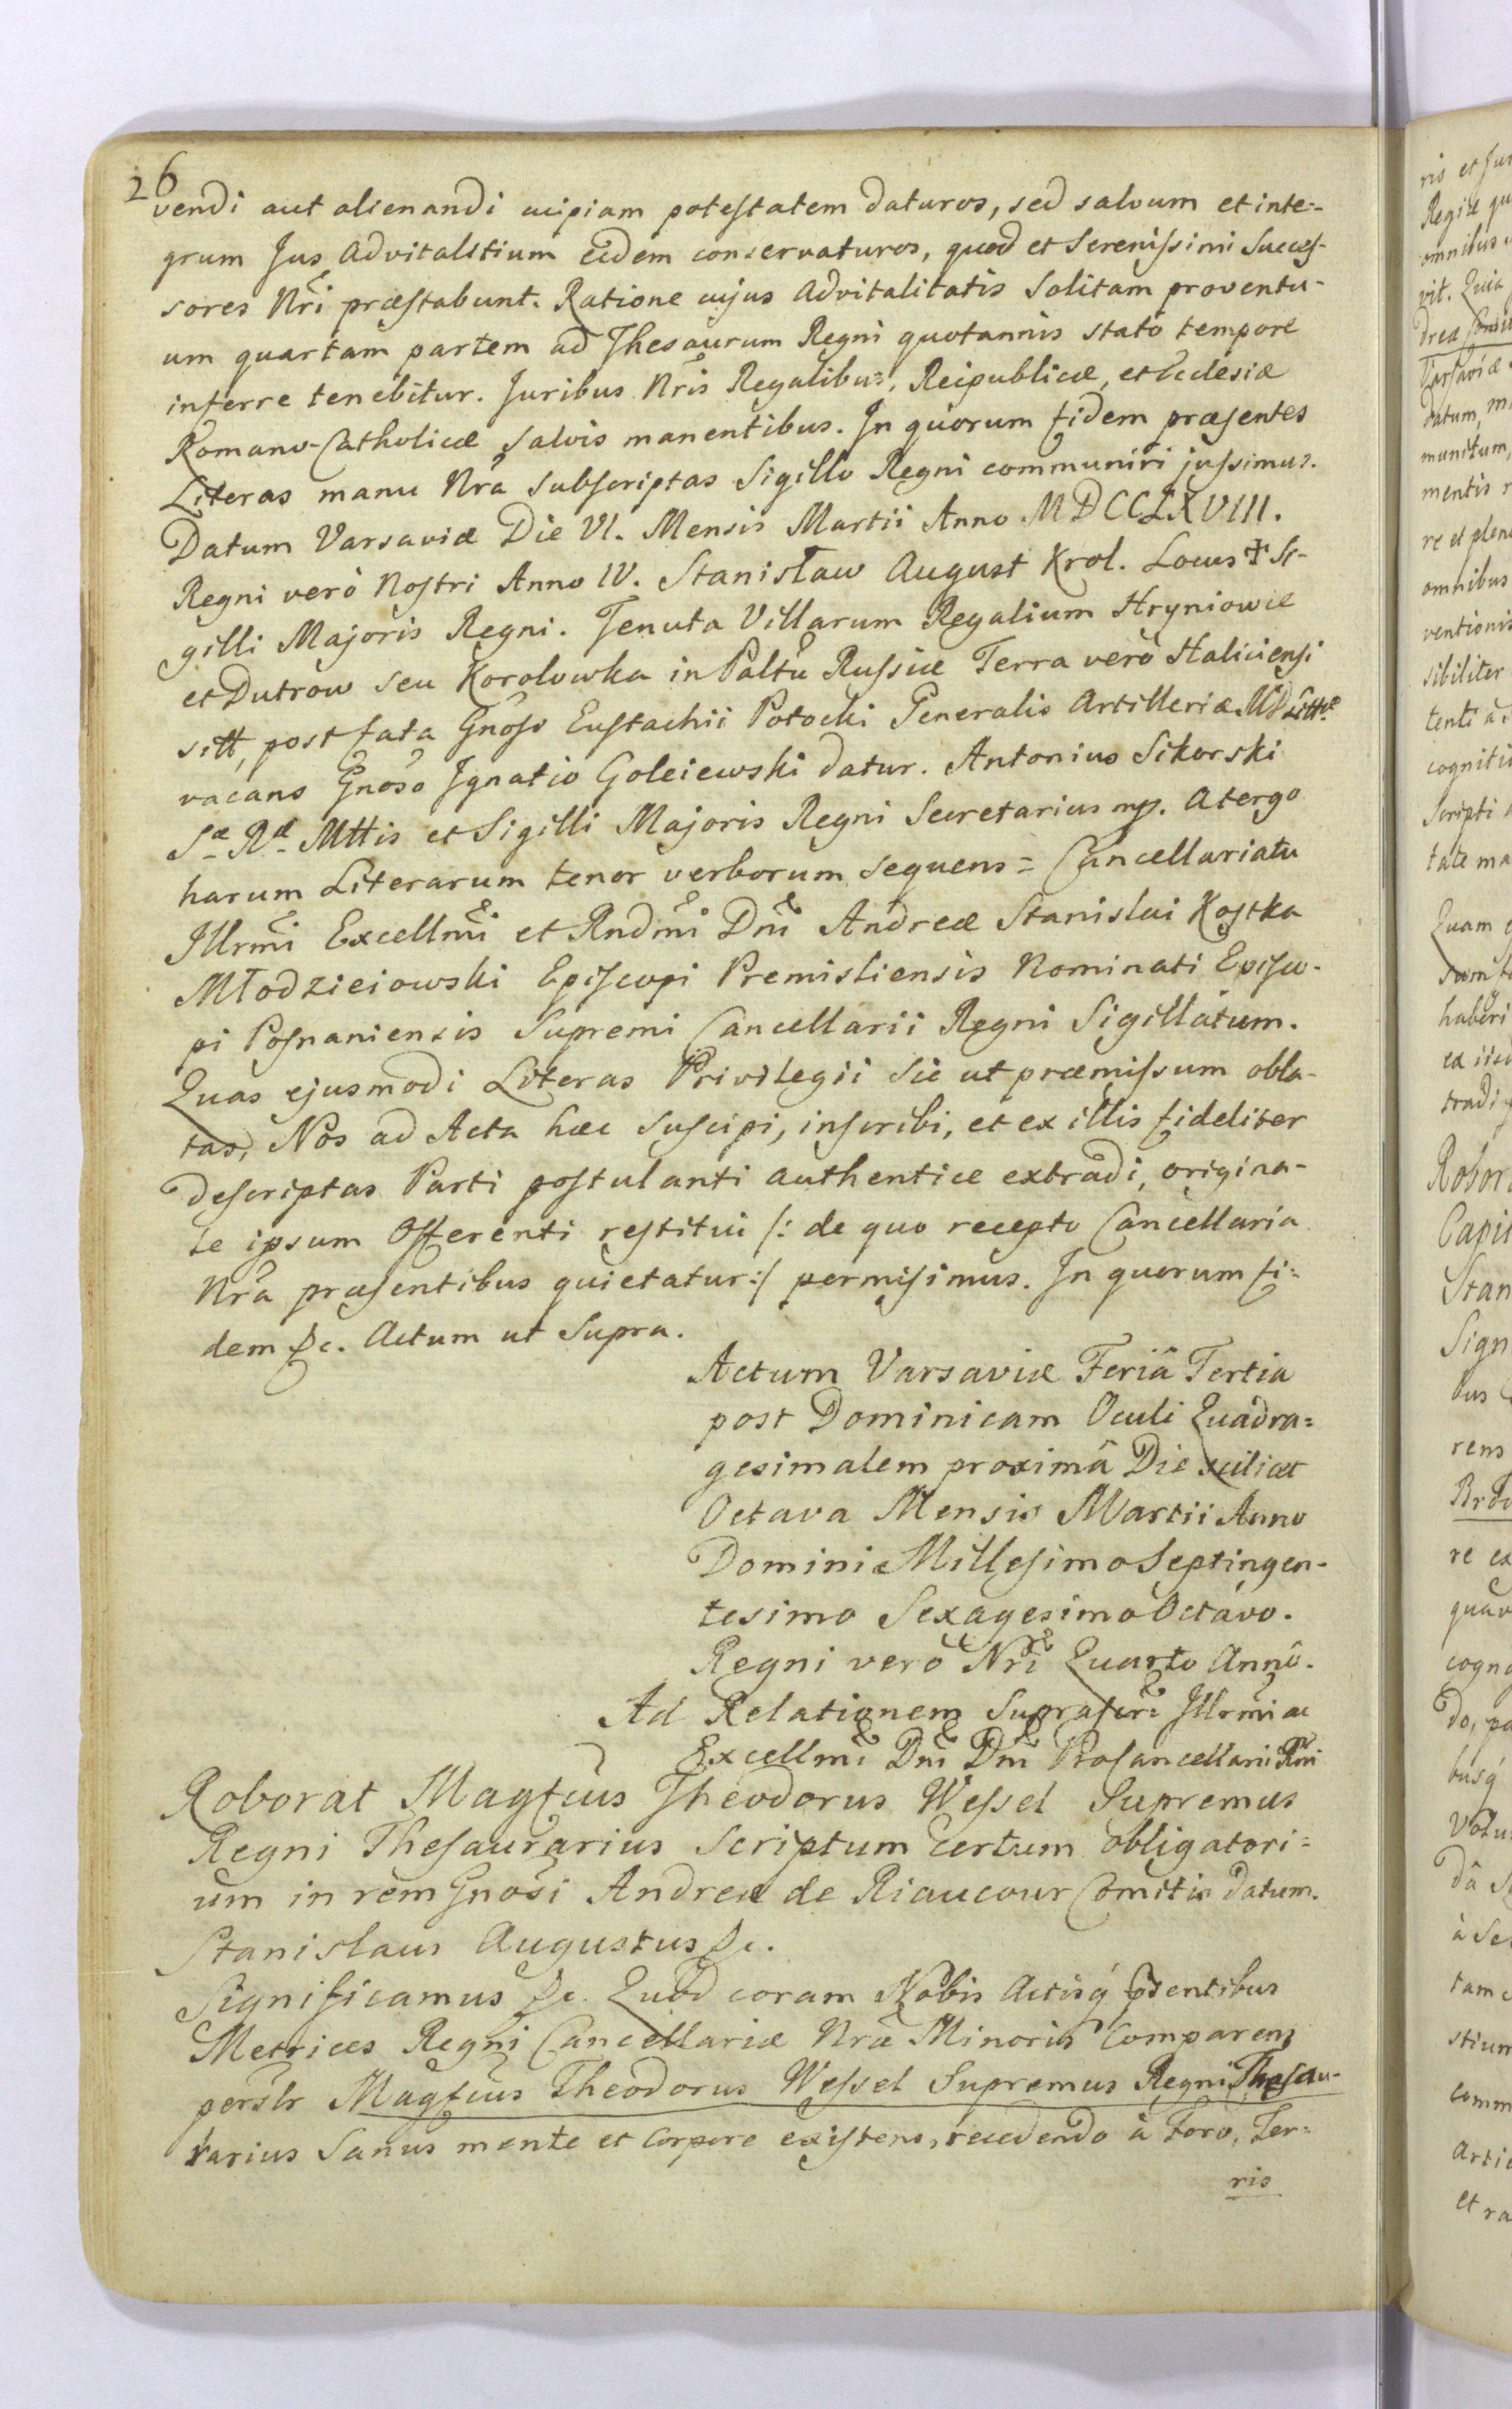 26
vendi aut alienandi cuipiam potestatem daturos, sed salvum et inte=
grum Jus Advitalitium eidem conservaturos, quod et Serenissimi Succes-
sores Nri præstabunt. Ratione cujus Advitalitatis Solitam proventu-
um quartam partem ad Thesaurum Regni quotannis stato tempore
inferre tenebitur. Juribus Nris Regalibus, Reipublicæ, et Ecclesiæ
Romano-Catholicæ salvis manentibus. In quorum fidem præsentes
Literas manu Nra subscriptas Sigillo Regni communiri jussimus.
Datum Varsaviæ Die VI. Mensis Martii Anno MDCCLXVIII.
Regni verò Nostri Anno IV. Stanisław August Krol. Locus ✝ Si-
gilli Majoris Regni. Tenuta Villarum Regalium Hryniowce
et Dutrow seu Korolowka in Paltu Russiæ Terra verò Haliciensi
sitt, post fata Gnoso Eustachii Potocki Generalis Artilleriæ MD Littæ
vacans Gnoso Ignatio Goleiewski datur. Antonius Sikorski
Sæ Ræ Mttis et Sigilli Majoris Regni Secretarius mp. Atergo
harum Literarum tenor verborum sequens = Cancellariatu
Illrmi Excellmi et Rndmi Dni Andreæ Stanislai Kostka
Młodzieiowski Episcopi Premisliensis Nominati Episco-
pi Posnaniensis Supremi Cancellarii Regni Sigillatum.
Quas ejusmodi Literas Privilegii sic ut præmissum obla-
tas, Nos ad Acta hæc suscipi, inscribi, et ex illis fideliter
descriptas Parti postulanti authentice extradi, origina-
le ipsum Offerenti restitui /: de quo recepto Cancellaria
Nra præsentibus quietatur :/ permisimus. In quorum fi=
dem &c. Actum ut Supra.
Actum Varsaviæ Feriâ Tertia
post Dominicam Oculi Quadra=
gesimalem proximâ Die scilicet
Octava Mensis Martii Anno
Domini Millesimo Septingen-
tesimo Sexagesimo Octavo.
Regni verò Nri Quarto Annô.
Ad Relationem Suprascri Illrmi ac
Excellmi Dni Dni Procancellarii Rni
Roborat Magfcus Theodorus Wessel Supremus
Regni Thesaurarius Scriptum certum obligatori=
um in rem Gnosi Andreæ de Riaucour Comitis datum.
Stanislaus Augustus &c.
Significamus &c. Quod coram Nobis Actisq́ psentibus
Metrices Regni Cancellariæ Nræ Minoris Comparens
perslr Magfcus Theodorus Wessel Supremus Regni Thesau-
rarius Sanus mente et Corpore existens, recedendo à Foro, Ter=
ris